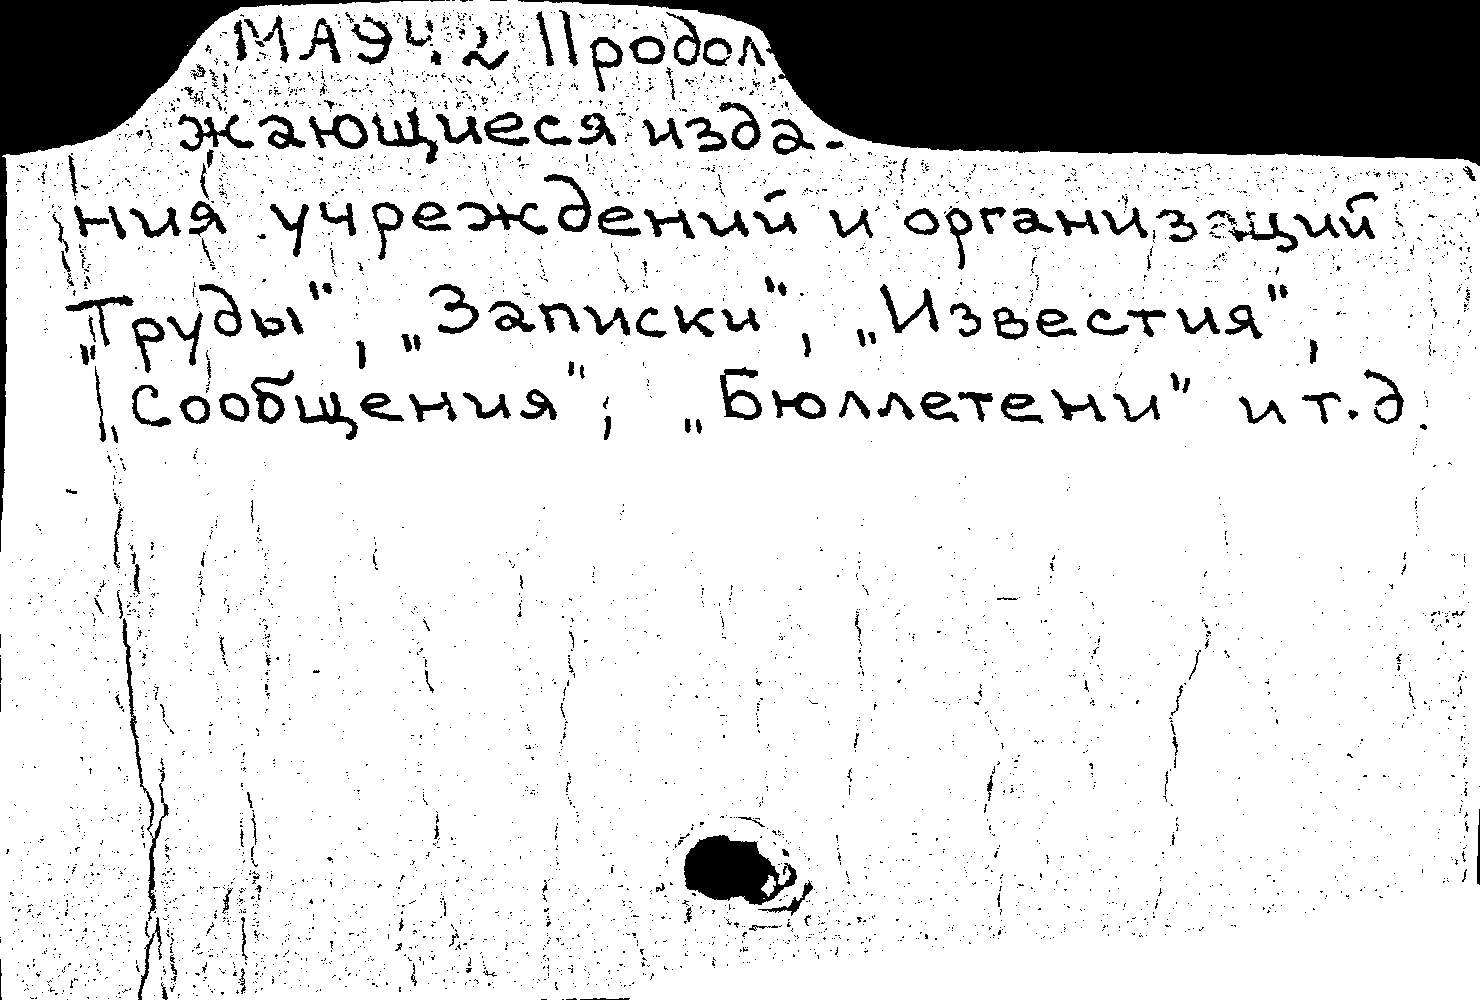 МАЭ ч.2 Продол-
жающиеся изда-
ния учреждений и организаций
„Труды", „Записки", „Известия",
„Сообщения", „Бюллетени" и т.д.